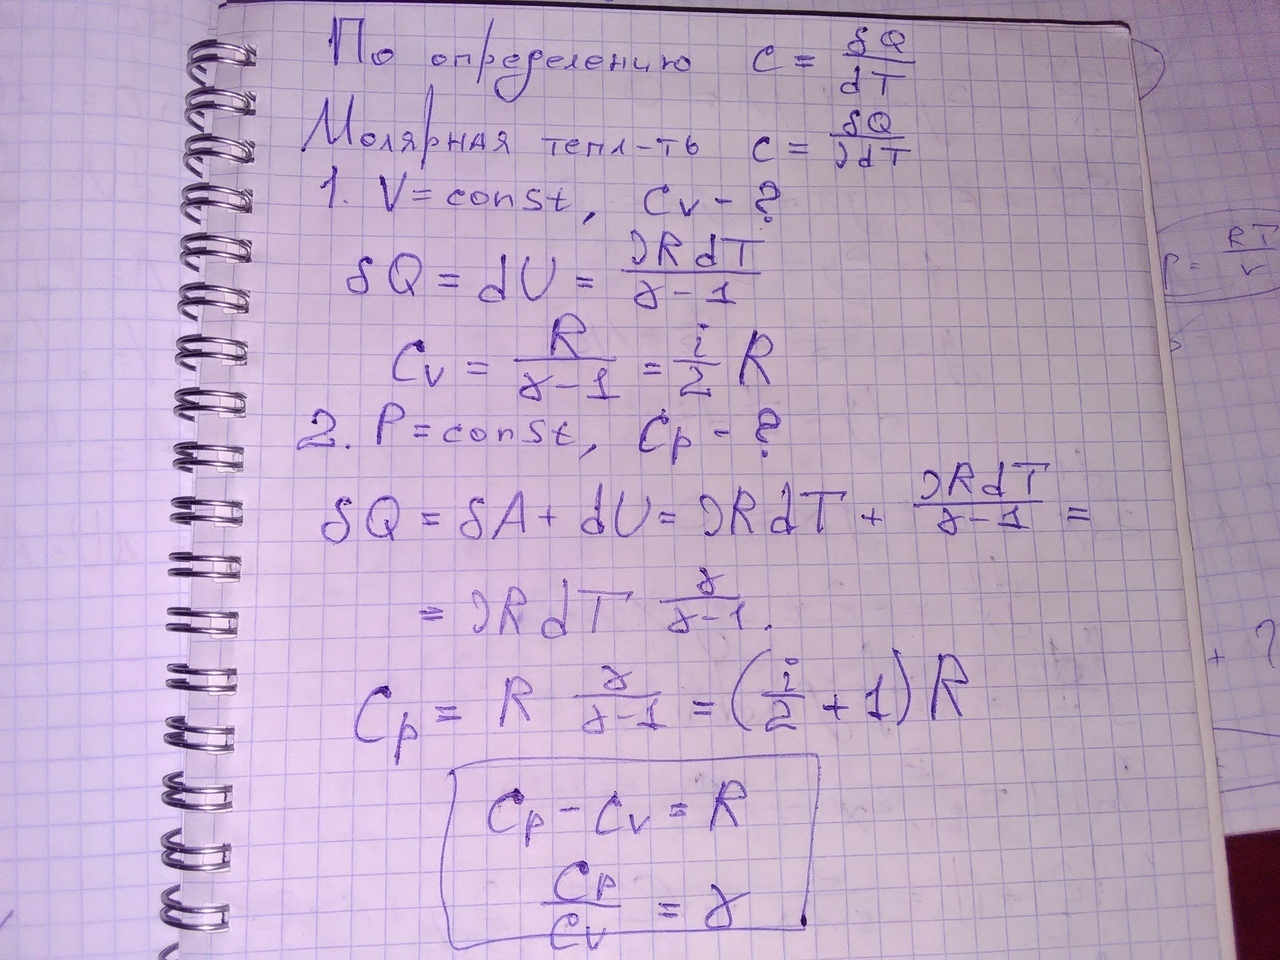 По определению c = δQ/dT
Молярная тепл-ть c = δQ/νdT
1. V = const, Cv - ?
δQ = dU = νRdT/γ-1
Cv = R/γ-1 = i/2 R
2. P = const, Cp - ?
δQ = δA + dU = νRdT + νRdT/γ-1 =
= νRdT γ/γ-1.
Cp = R γ/γ-1 = (i/2 + 1)R
Cp - Cv = R
Cp/Cv = γ
P = RT/V
+ 2